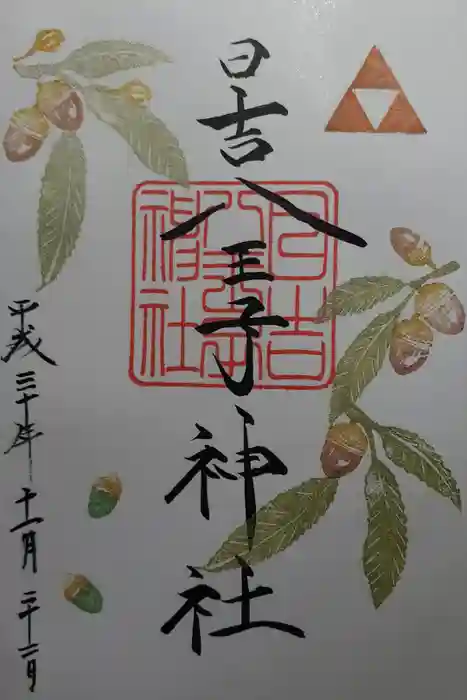 日吉八王子神社
日吉
八王子
神社
平成三十年十一月二十二日